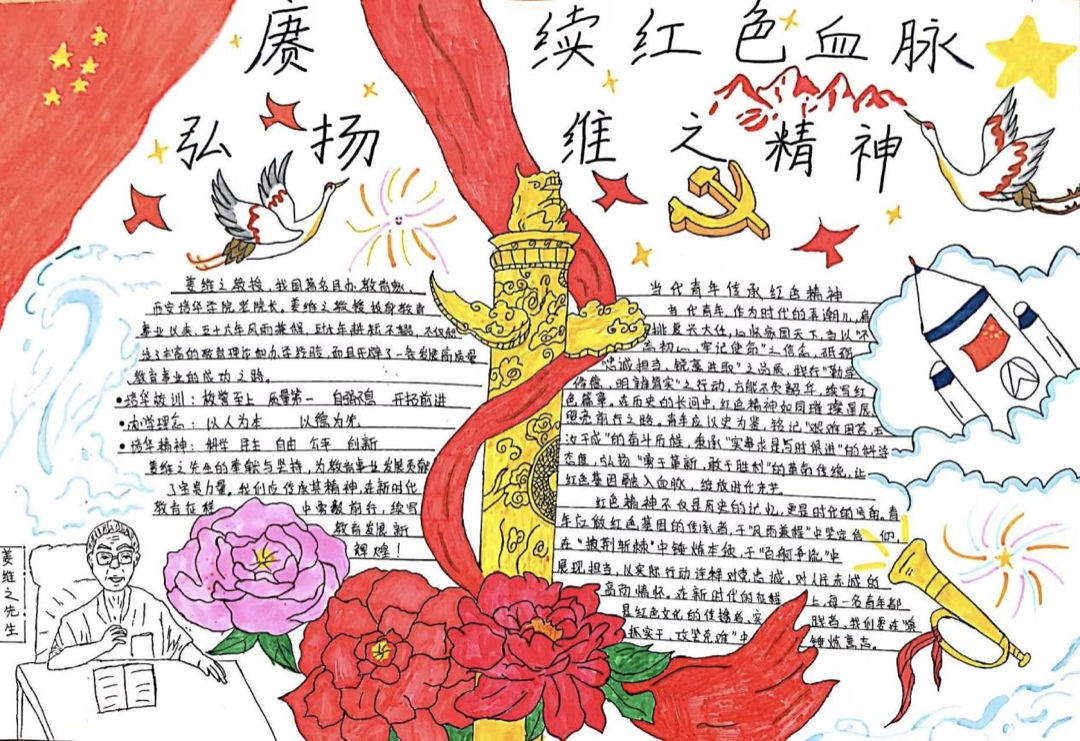 赓续红色血脉
弘扬维之精神
姜维之教授，我国著名民办教育家、
西安培华学院老院长。姜维之教授投身教育
事业以来，五十六年风雨兼程，
教育事业的成功之路。
•培华校训：教学至上 质量第一 自强不息 开拓前进
•办学理念：以人为本 以德为先
•培华精神：科学 民主 自由 公平 创新
姜维之先生的奉献与坚持，为教育事业发展贡献
了宝贵力量。我们应传承其精神，在新时代
教育征程中奋毅前行，续写
教育发展新
辉煌！
姜维之先生
当代青年传承红色精神
当代青年，作为时代的弄潮儿，肩
挑复兴大任，心怀家国天下，当以“不
忘初心，牢记使命”之信念，砥砺
“忠诚担当，锐意进取”之品质，践行“勤学
修德，明辨笃实”之行动，方能不负韶华，续写红
色篇章。在历史的长河中，红色精神如同璀璨星辰，
照亮前行之路。青年应以史为鉴，铭记“艰难困苦，玉
汝于成”的奋斗历程，秉承“实事求是与时俱进”的科学
态度，弘扬“勇于革新，敢于胜利”的革命传统，让
红色基因融入血脉，绽放时代光芒。
红色精神不仅是历史的记忆，更是时代的号角。青
年应做红色基因的传承者，于“风雨兼程”中坚定信仰，
在“披荆斩棘”中锤炼本领，于“百舸争流”中
展现担当，以实际行动诠释对党忠诚，对人民赤诚的
高尚情怀。在新时代的征程上，每一名青年都
是红色文化的传播者，实践者，我们要在“真
抓实干，攻坚克难”中锤炼意志。